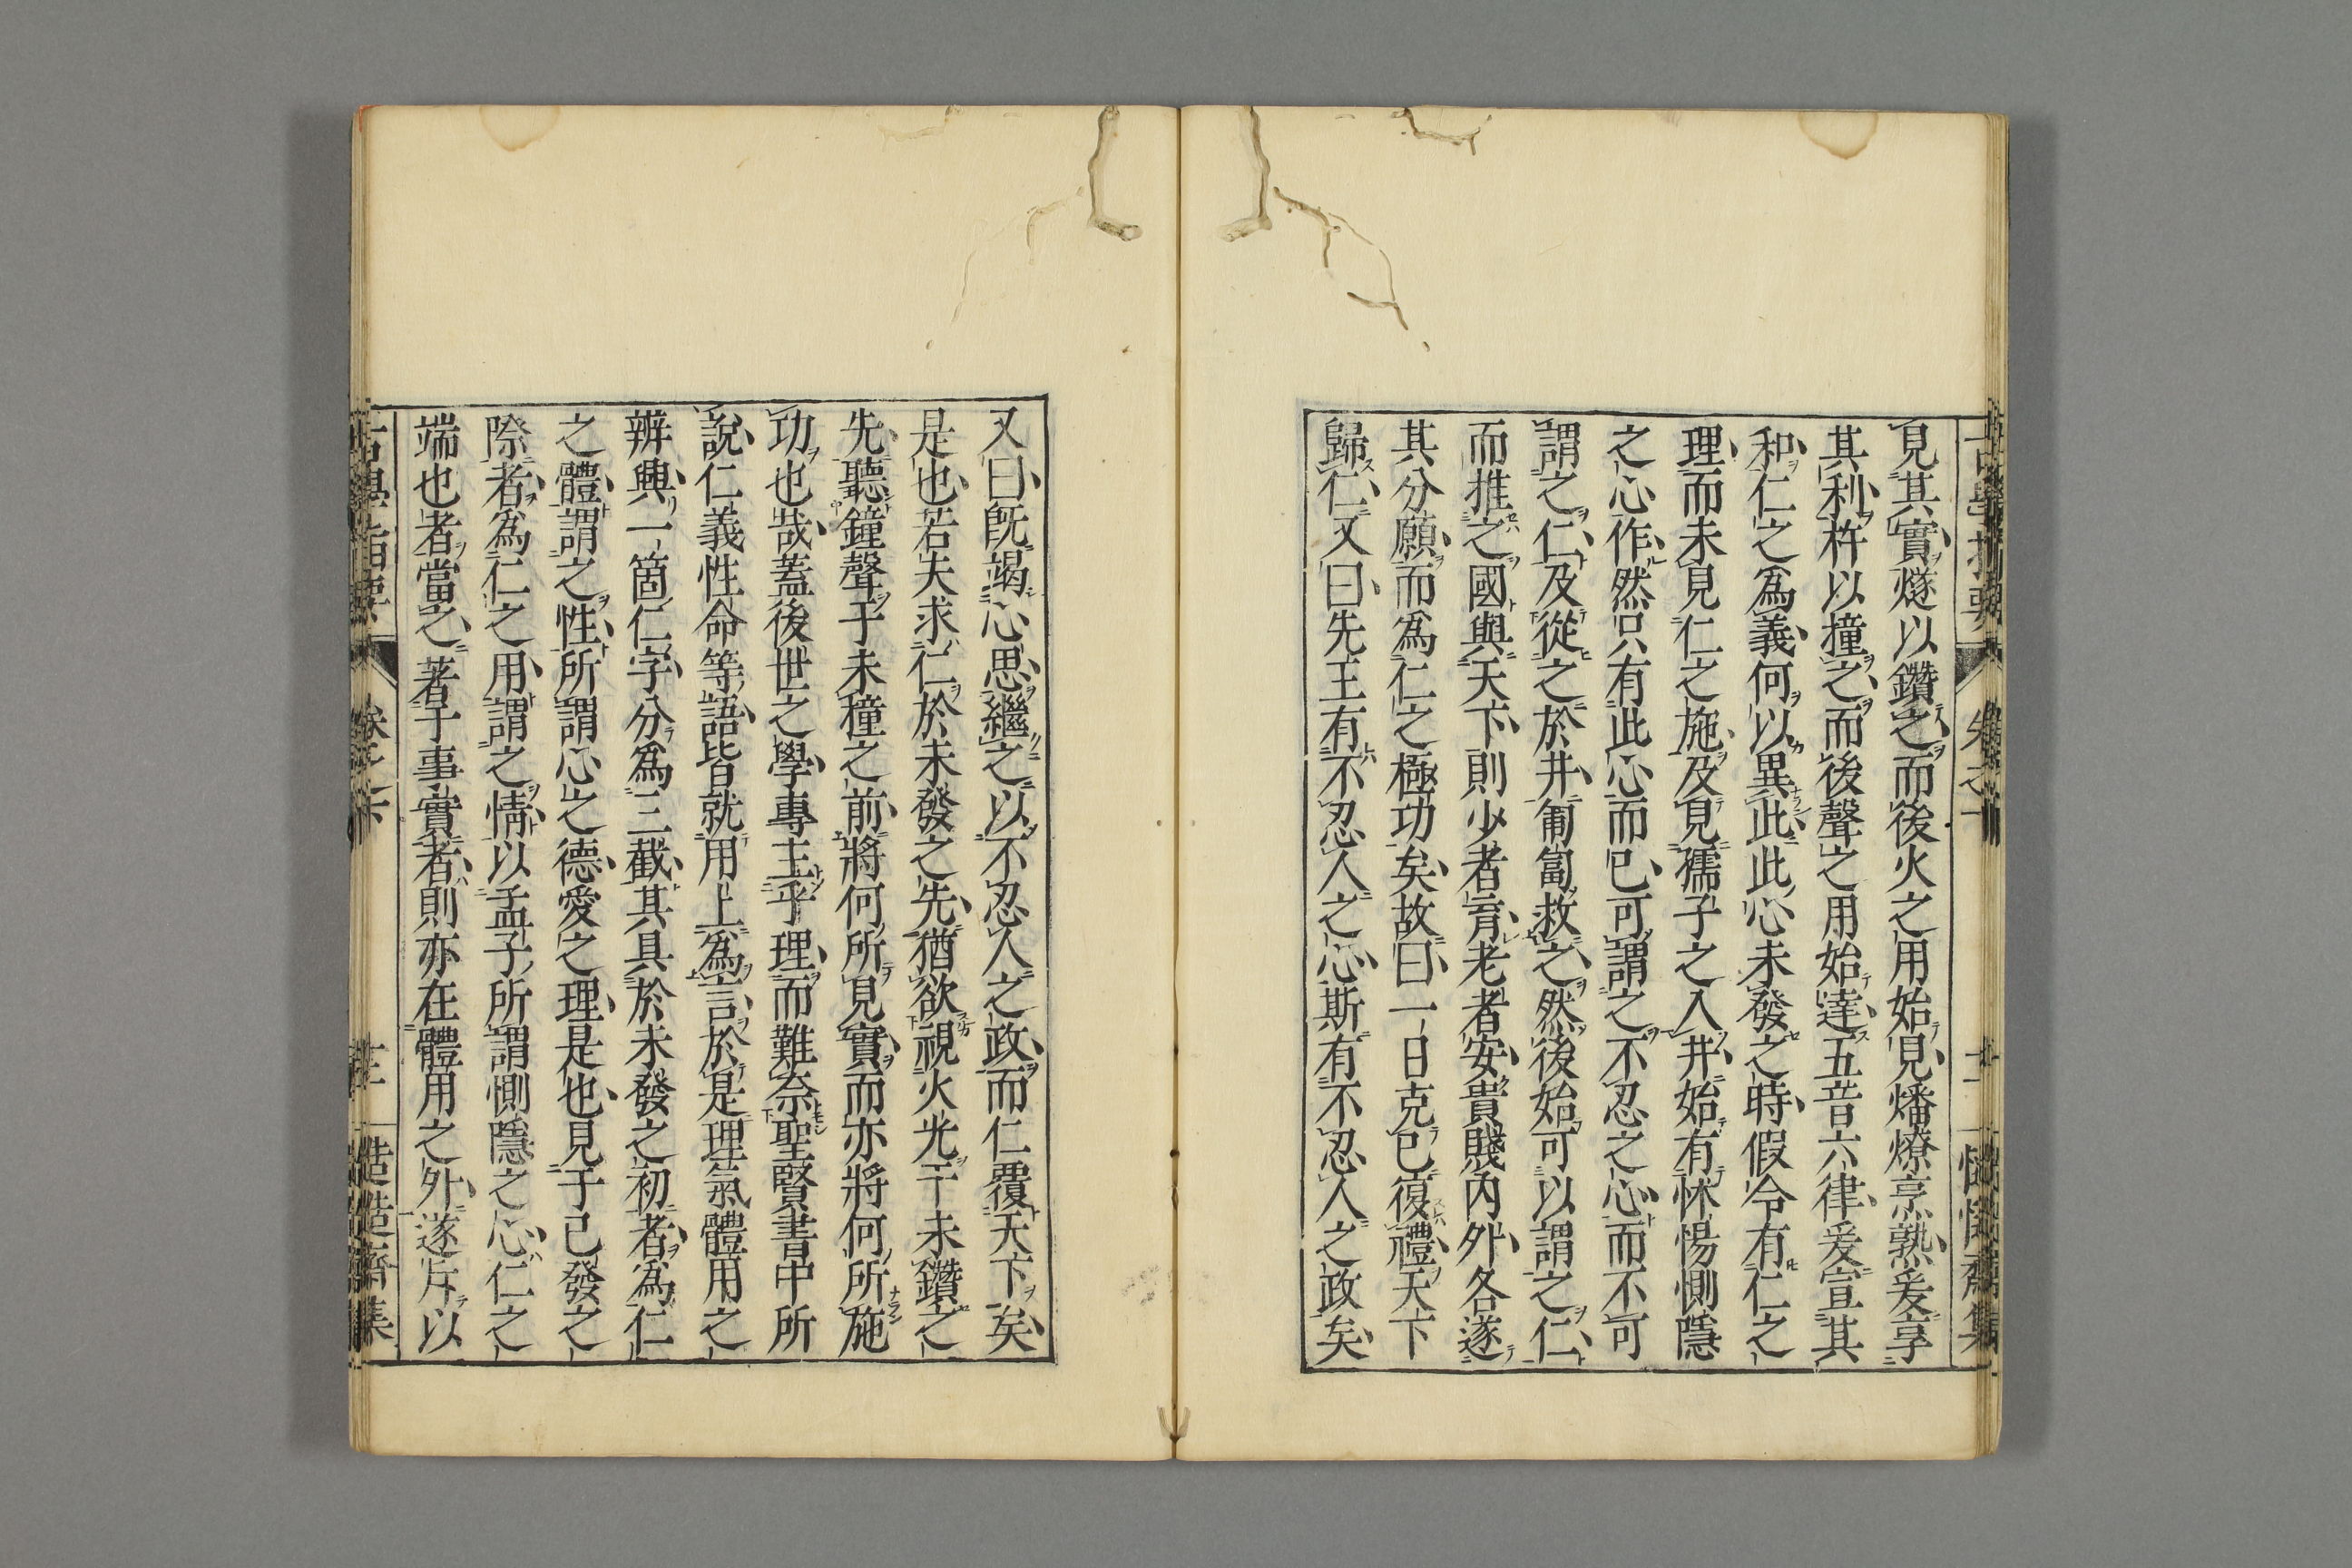 見其實燧以鑽之而後火之用始見燔燎烹熟爰享
其利杵以撞之而後聲之用始達五音六律爰宣其
和仁之爲義何以異此此心未發之時假令有仁之
理而未見仁之施及見孺子之入井始有怵惕惻隱
之心作然只有此心而已可謂之不忍之心而不可
謂之仁及從之於井匍匐救之然後始可以謂之仁
而推之國與天下則少者育老者安貴賤內外各遂
其分願而爲仁之極功矣故曰一日克已復禮天下
歸仁又曰先王有不忍人之心斯有不忍人之政矣
又曰既竭心思繼之以不忍人之政而仁覆天下矣
是也若夫求仁於未發之先猶欲視火光于未鑽之
先聽鐘聲于未穜之前將何所見實而亦將何所施
功也哉蓋後世之學專主乎理而難奈聖賢書中所
說仁義性命等語皆就用上爲言於是理氣體用之
辨興一箇仁字分爲三截其具於未發之初者爲仁
之體謂之性所謂心之德愛之理是也見于已發之
際者爲仁之用謂之情以孟子所謂惻隱之心仁之
端也者當之著于事實者則亦在體用之外遂斥以
古學指要